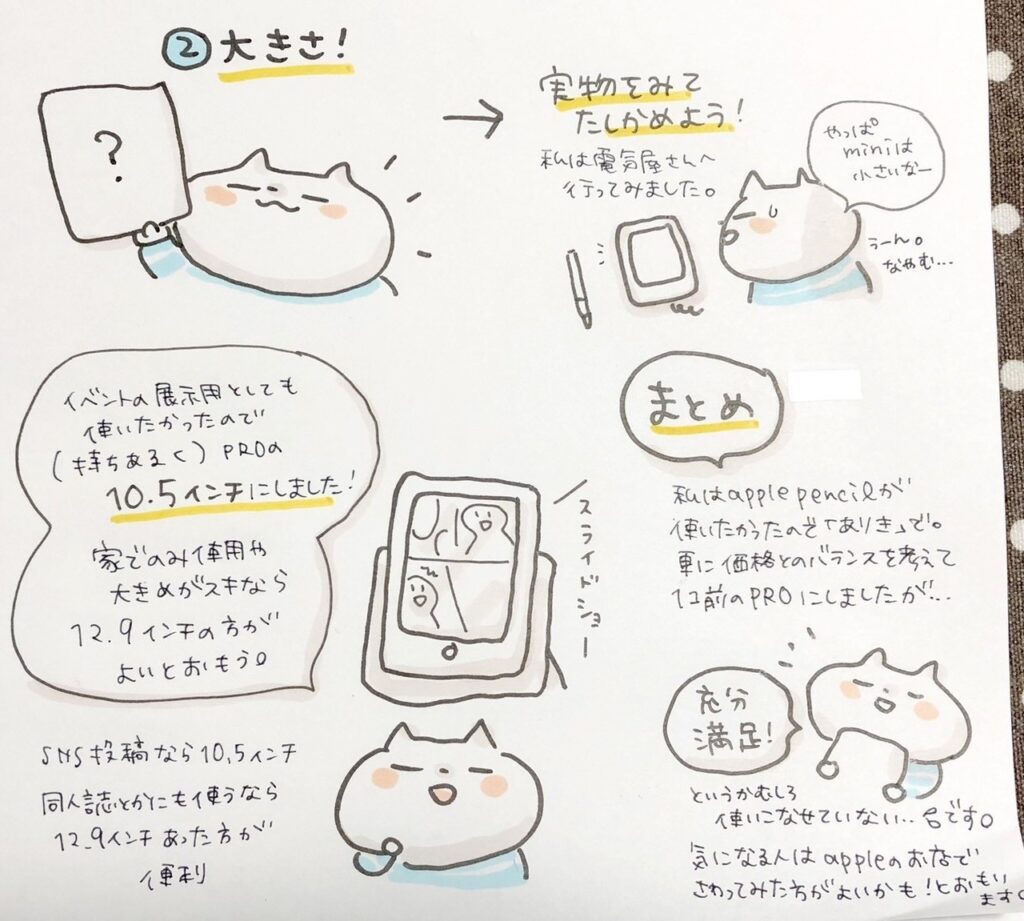 ② 大きさ！
？
→
実物をみて
たしかめよう！
私は電気屋さんへ
行ってみました。
やっぱ
miniは
小さいなー
うーん。
なやむ…
イベントの展示用としても
使いたかったので
（持ちあるく）PROの
10.5インチにしました！
家でのみ使用や
大きめがスキなら
12.9インチの方が
よいとおもう。
スライドショー
SNS投稿なら10.5インチ
同人誌とかにも使うなら
12.9インチあった方が
便利
まとめ
私はapple pencilが
使いたかったので「ありき」で。
更に価格とのバランスを考えて
1コ前のPROにしましたが…
充分
満足！
というかむしろ
使いこなせていない…
です。
気になる人はappleのお店で
さわってみた方がよいかも！とおもい
ます。